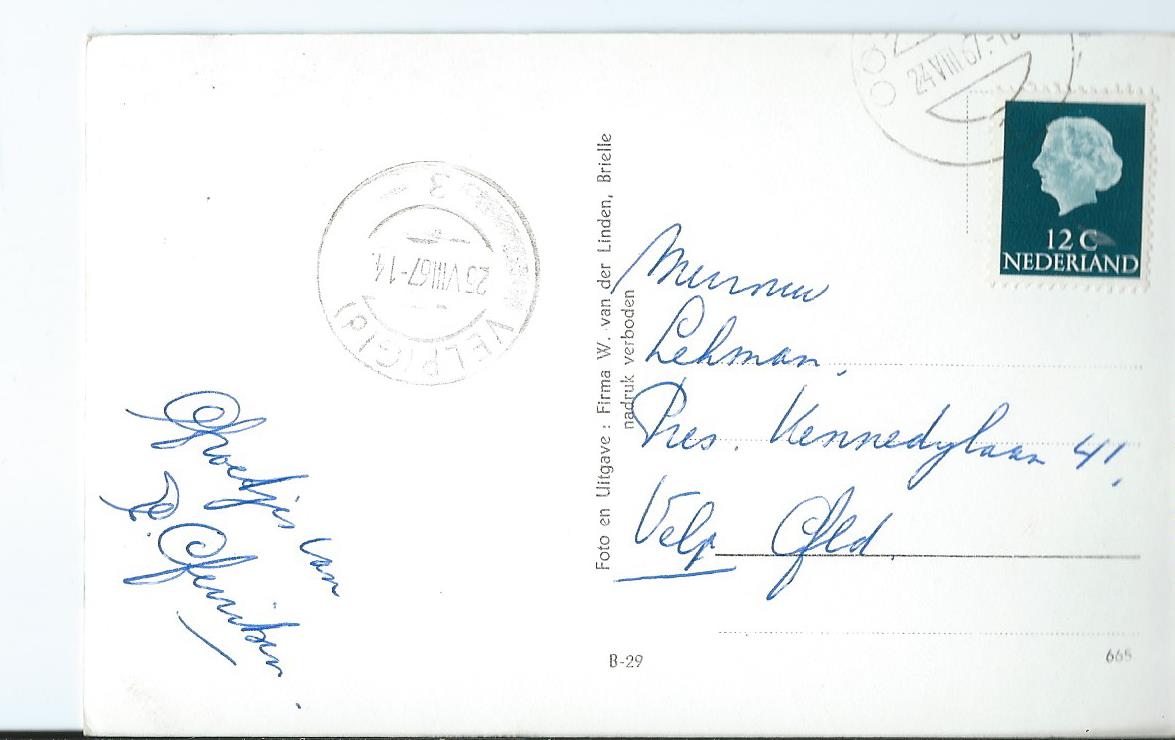 Groetjes van
Foto en Uitgave : Firma W. van der Linden, Brielle
nadruk verboden
24 VIII 67
VELP(GLD)
3
25 VIII 67-14
12 C
NEDERLAND
Mevrouw
Lehman,
Pres. Kennedylaan 41,
Velp Gld.
B-29
665